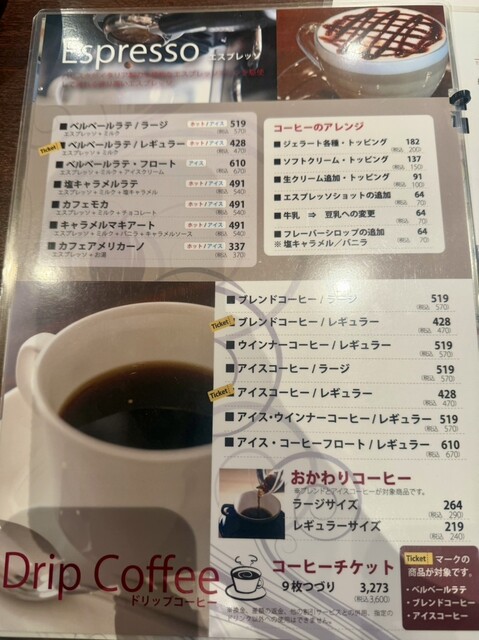 Espresso エスプレッソ
■ベルベールラテ / ラージ ホット/アイス 519
エスプレッソ+ミルク (税込 570)
Ticket
■ベルベールラテ / レギュラー ホット/アイス 428
エスプレッソ+ミルク (税込 470)
■ベルベールラテ・フロート アイス 610
エスプレッソ+ミルク+アイスクリーム (税込 670)
■塩キャラメルラテ ホット/アイス 491
エスプレッソ+ミルク+塩キャラメル (税込 540)
■カフェモカ ホット/アイス 491
エスプレッソ+ミルク+チョコレート (税込 540)
■キャラメルマキアート ホット/アイス 491
エスプレッソ+ミルク+バニラ+キャラメルソース (税込 540)
■カフェアメリカーノ ホット/アイス 337
エスプレッソ+お湯 (税込 370)
コーヒーのアレンジ
■ジェラート各種・トッピング 182
(税込 200)
■ソフトクリーム・トッピング 137
(税込 150)
■生クリーム追加・トッピング 91
(税込 100)
■エスプレッソショットの追加 64
(税込 70)
■牛乳 ⇒ 豆乳への変更 64
(税込 70)
■フレーバーシロップの追加 64
※ 塩キャラメル/バニラ (税込 70)
■ブレンドコーヒー / ラージ 519
(税込 570)
Ticket
■ブレンドコーヒー / レギュラー 428
(税込 470)
■ウインナーコーヒー / レギュラー 519
(税込 570)
■アイスコーヒー / ラージ 519
(税込 570)
Ticket
■アイスコーヒー / レギュラー 428
(税込 470)
■アイス・ウインナーコーヒー / レギュラー 519
(税込 570)
■アイス・コーヒーフロート / レギュラー 610
(税込 670)
おかわりコーヒー
※ブレンドとアイスコーヒーが対象商品です。
ラージサイズ 264
(税込 290)
レギュラーサイズ 219
(税込 240)
Drip Coffee
ドリップコーヒー
コーヒーチケット
9枚つづり 3,273
(税込3,600)
Ticket マークの
商品が対象です。
・ベルベールラテ
・ブレンドコーヒー
・アイスコーヒー